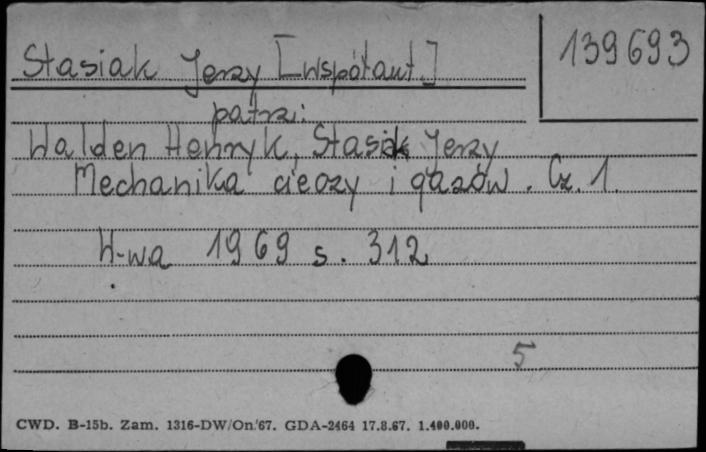 139693
Stasiak Jerzy [współaut.]
patrz:
Walden Henryk, Stasiak Jerzy
Mechanika cieczy i gazów. Cz. 1.
W-wa 1969 s. 312
5
CWD. B-15b. Zam. 1316-DW/On.'67. GDA-2464 17.8.67. 1.400.000.